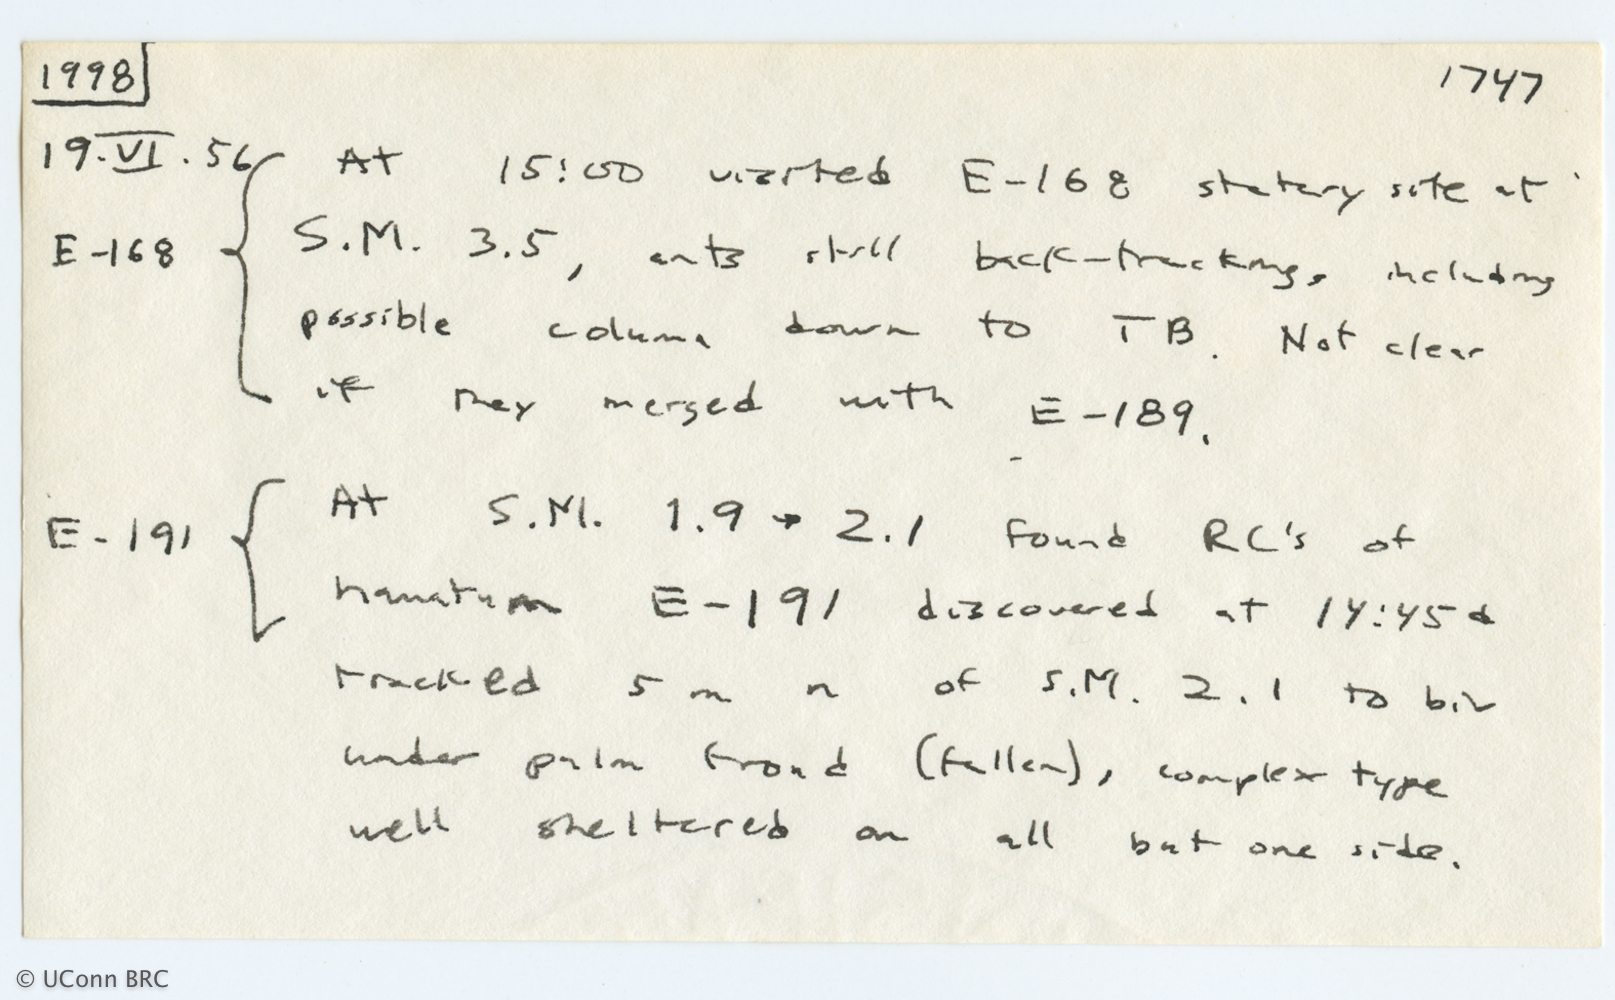 1998
1747
19.VI.56
At 15:00 visited E-168 statary site at
E-168
S.M. 3.5, ants still back-tracking, including
possible column down to TB. Not clear
if they merged with E-189.
E-191
At S.M. 1.9 → 2.1 found RC's of
hamatum E-191 discovered at 14:45 &
tracked 5 m n of S.M. 2.1 to biv
under palm frond (fallen), complex type
well sheltered on all but one side.
© UConn BRC